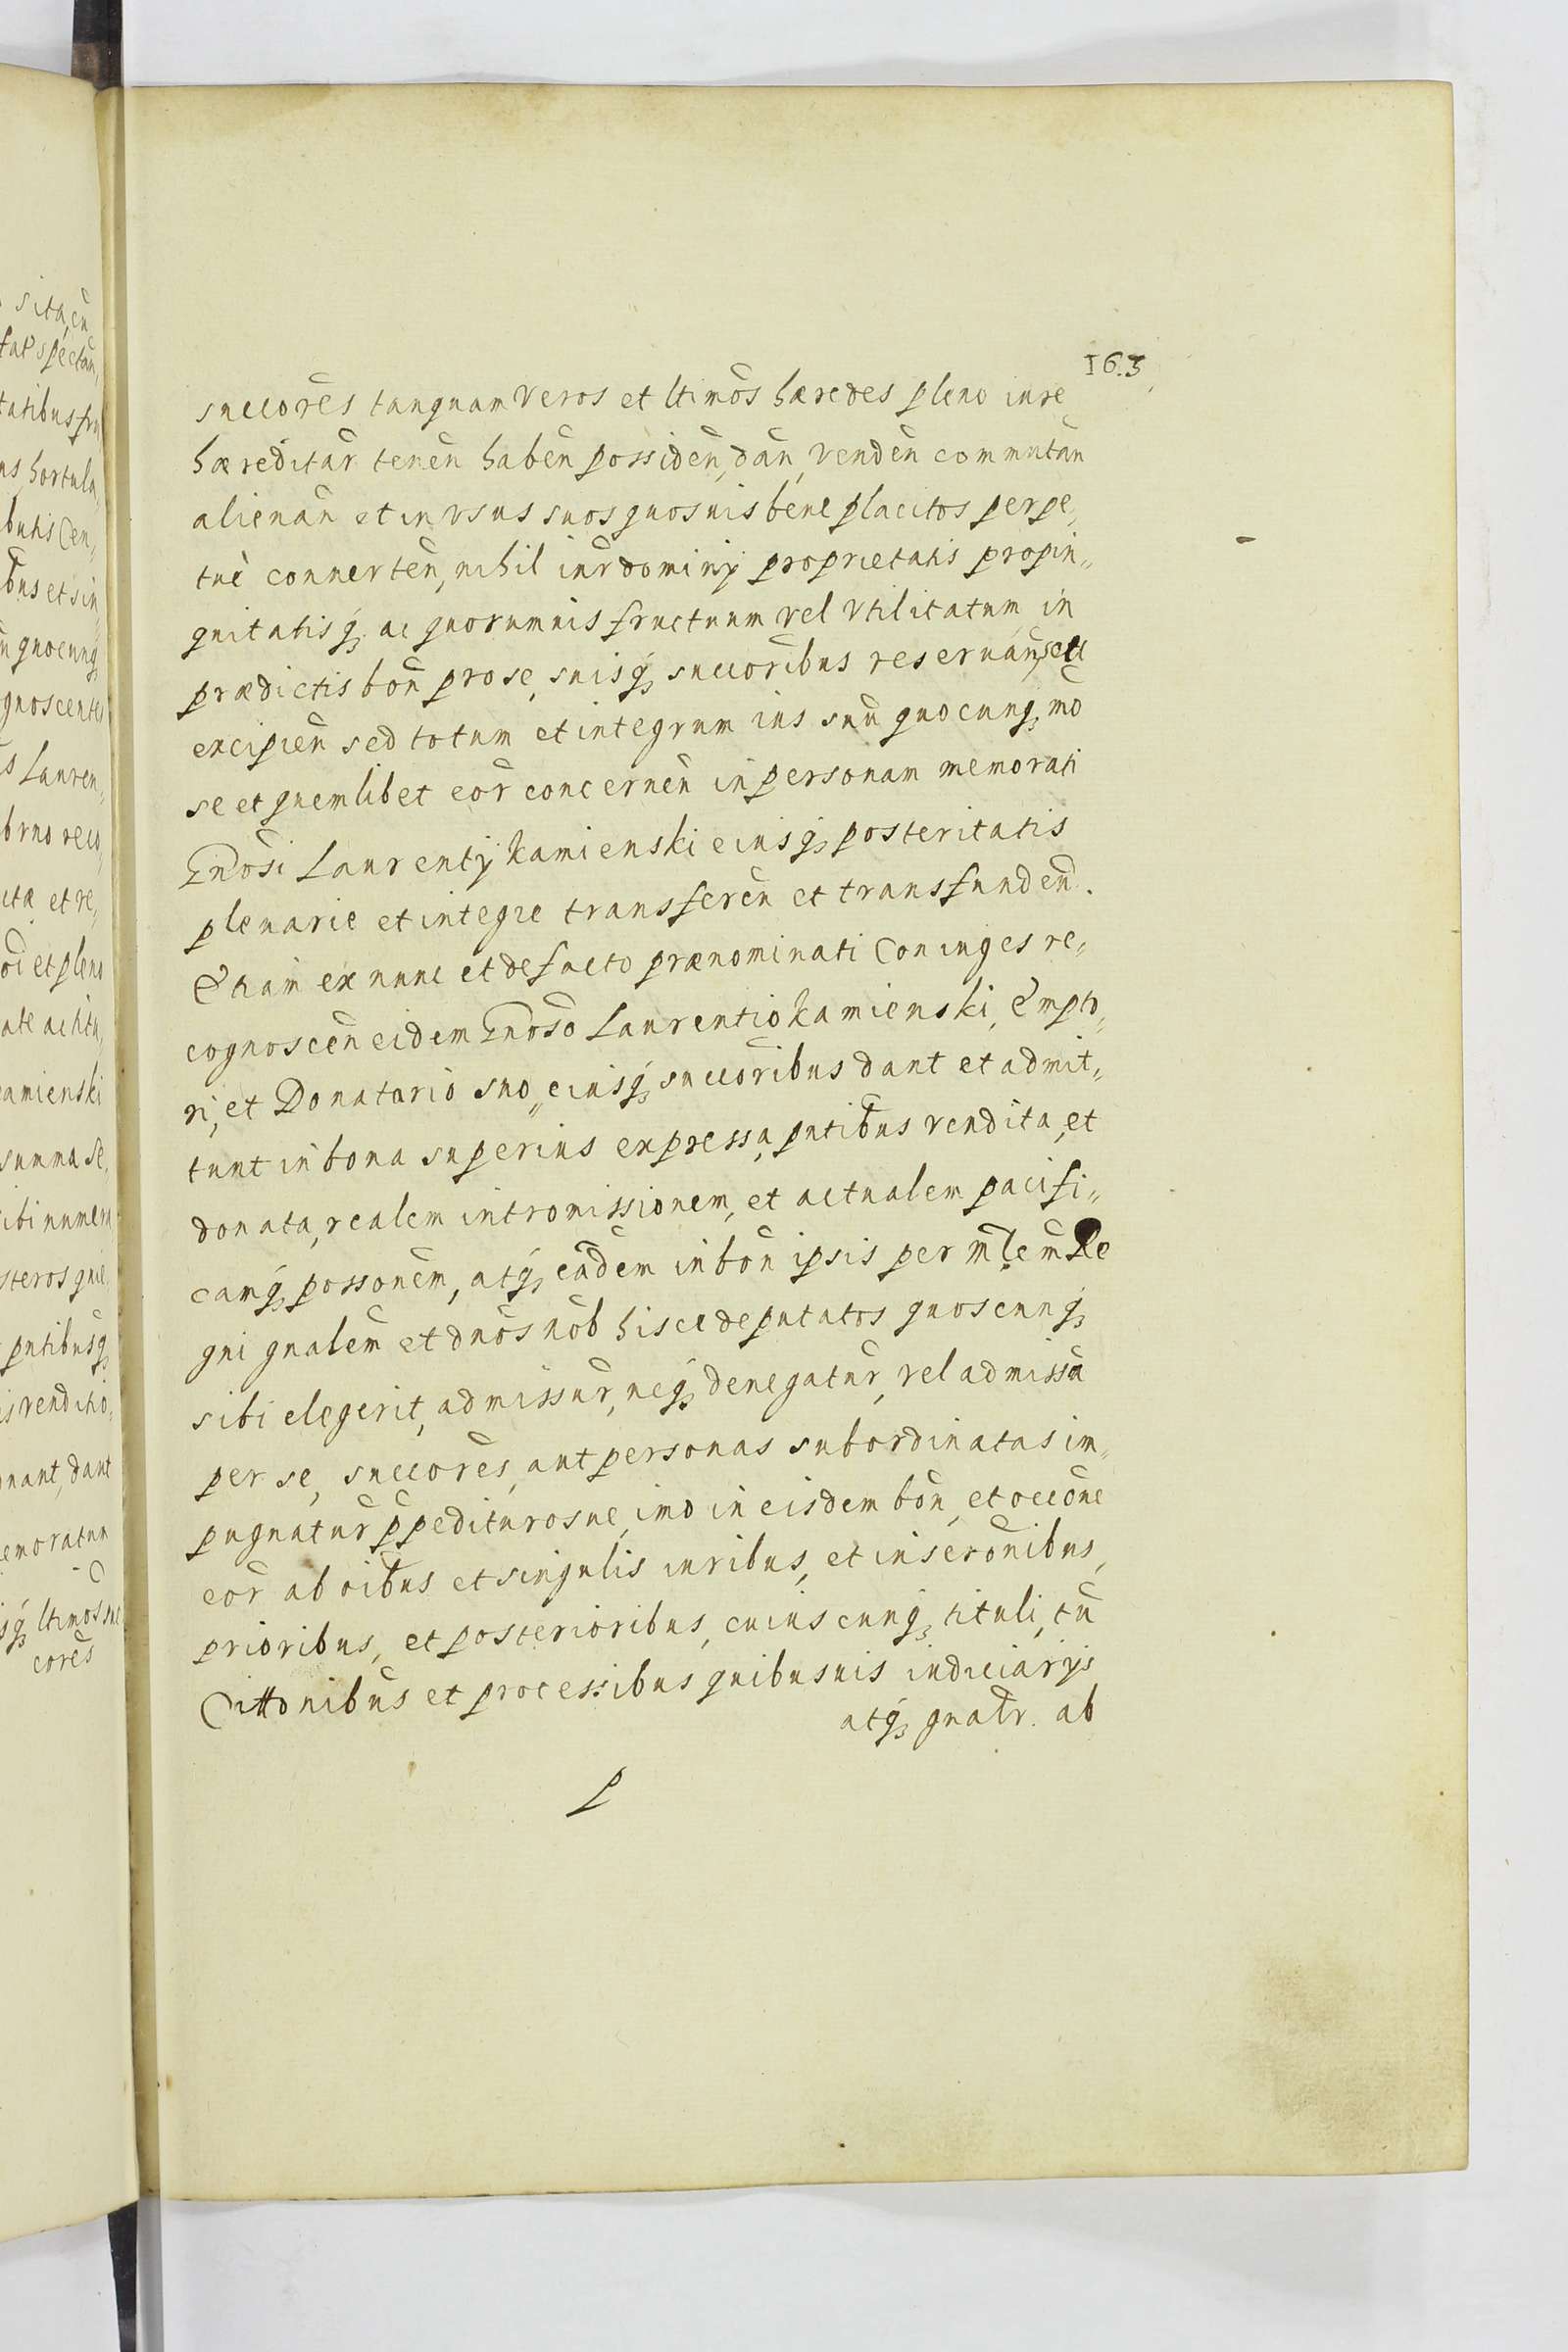 163
succores tanquam veros et ltimos hæredes pleno iure
hæreditar tenen haben possiden, dan, venden commutan
alienan et in vsus suos quosuis bene placitos perpe„
tuè conuerten, nihil iur dominij proprietatis propin„
quitatisq, ac quorumuis fructuum vel vtilitatum in
prædictis bon pro se, suisq, succoribus reseruan, seu
excipien sed totum et integrum ius suu quocunq, mo
se et quemlibet eor concernen in personam memorati
Gnosi Laurentij Kamienski eiusq, posteritatis
plenarie et integre transferen et transfunden.
Etiam ex nunc et de facto prænominati Coniuges re„
cognoscen eidem Gnoso Laurentio Kamienski, Empto„
ri, et Donatario suo, eiusq, succoribus dant et admit„
tunt in bona superius expressa, pntibus vendita, et
donata, realem intromissionem, et actualem pacifi„
camq, possonem, atq, eadem in bon ipsis per mlem Re
gni gnalem et dnos nob hisce deputatos quoscunq,
sibi elegerit, admissur, neq, denegatur, vel admissa
per se, succores, aut personas subordinatas im„
pugnatur ppediturosue, imo in eisdem bon, et occone
eor ab oibus et singulis iuribus, et inscronibus,
prioribus, et posterioribus, cuiuscunq, tituli, tu
Cittonibus et processibus quibusuis iudiciarijs
atq, gnatr. ab
P